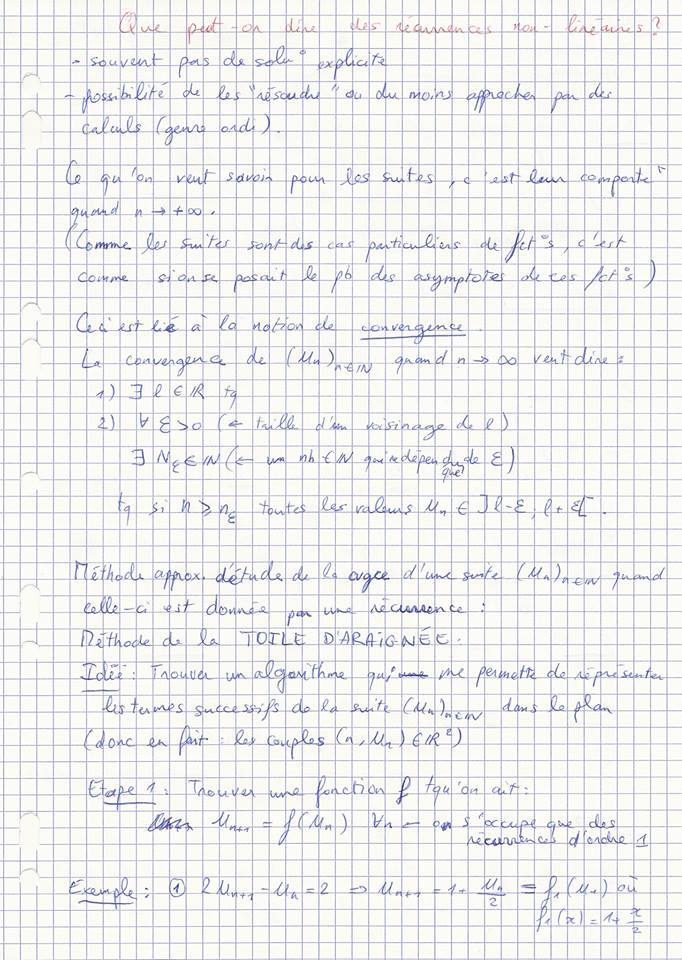 Que peut-on dire des récurrences non-linéaires?
- souvent pas de solu° explicite
- possibilité de les "résoudre" ou du moins approcher par des
calculs (genre ordi).
Ce qu'on veut savoir pour les suites, c'est leur comporte^t
quand n → +∞.
(Comme les suites sont des cas particuliers de fct°s, c'est
comme si on se posait le pb des asymptotes de ces fct°s)
Ceci est lié à la notion de convergence.
La convergence de (Un)n∈IN quand n → ∞ veut dire :
1) ∃ l ∈ IR tq
2) ∀ ε>0 (← taille d'un voisinage de l)
∃ Nε ∈ IN (← un nb ∈ IN qui ne dépend que de ε)
tq si n ≥ nε toutes les valeurs Un ∈ ]l-ε; l+ε[.
Méthode approx. d'étude de la cvgce d'une suite (Un)n∈IN quand
celle-ci est donnée par une récurrence :
Méthode de la TOILE D'ARAIGNÉE.
Idée : Trouver un algorithme qui me permette de représenter
les termes successifs de la suite (Un)n∈IN dans le plan
(donc en fait : les couples (n, Un) ∈ IR²)
Etape 1 : Trouver une fonction f tqu'on ait :
Un+1 = f(Un) ∀n ← on s'occupe que des
récurrences d'ordre 1
Exemple : ① 2Un+1 - Un = 2 → Un+1 = 1 + Un/2 = f1(Un) où
f1(x) = 1 + x/2